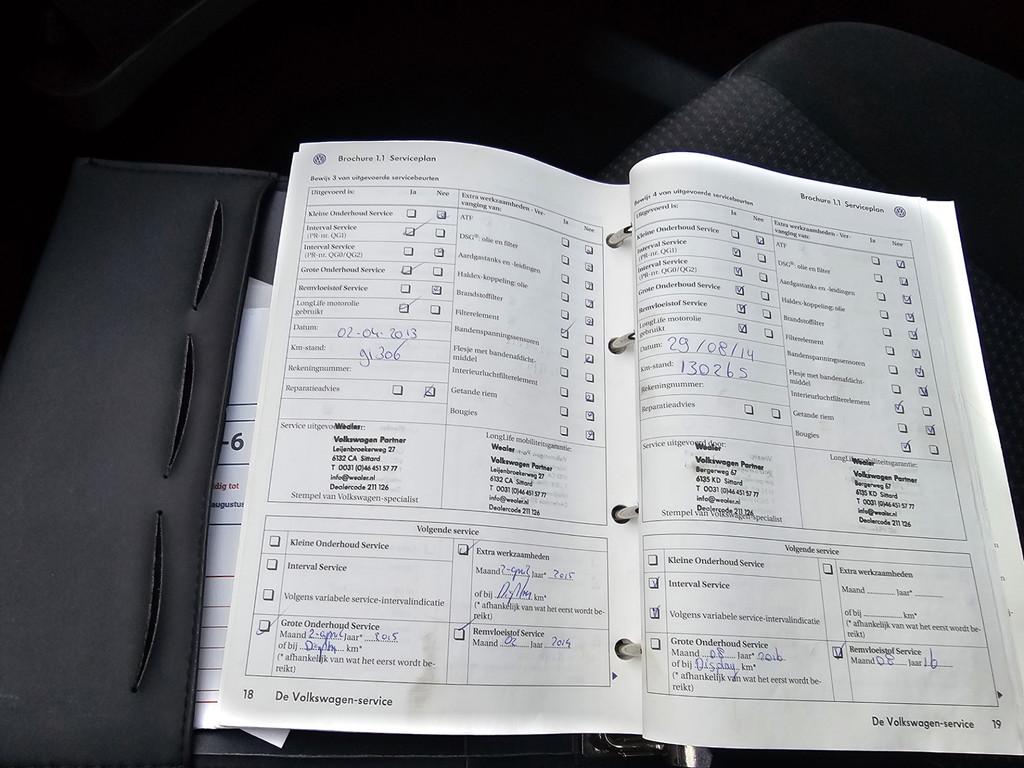 Brochure 1.1 Serviceplan
Bewijs 3 van uitgevoerde servicebeurten
Uitgevoerd is: Ja Nee
Kleine Onderhoud Service
Interval Service
(PR-nr. QG1)
Interval Service
(PR-nr. QG0/QG2)
Grote Onderhoud Service
Remvloeistof Service
LongLife motorolie
gebruikt
Datum: 02-04-2013
Km-stand: 91306
Rekeningnummer:
Reparatieadvies
Extra werkzaamheden - Ver-
vanging van: Ja Nee
ATF
DSG®: olie en filter
Aardgastanks en -leidingen
Haldex-koppeling: olie
Brandstoffilter
Filterelement
Bandenspanningssensoren
Flesje met bandenafdicht-
middel
Interieurluchtfilterelement
Getande riem
Bougies
Service uitgevoerd door:
Wealer
Volkswagen Partner
Leijenbroekerweg 27
6132 CA Sittard
T 0031 (0)46 451 57 77
info@wealer.nl
Dealercode 211 126
Stempel van Volkswagen-specialist
LongLife mobiliteitsgarantie:
Wealer
Volkswagen Partner
Leijenbroekerweg 27
6132 CA Sittard
T 0031 (0)46 451 57 77
info@wealer.nl
Dealercode 211 126
Volgende service
Kleine Onderhoud Service
Interval Service
Volgens variabele service-intervalindicatie
Grote Onderhoud Service
Maand 2-april Jaar* 2015
of bij Display km*
(* afhankelijk van wat het eerst wordt be-
reikt)
Extra werkzaamheden
Maand 2-april Jaar* 2015
of bij Display km*
(* afhankelijk van wat het eerst wordt be-
reikt)
Remvloeistof Service
Maand 02 Jaar 2014
18 De Volkswagen-service
Brochure 1.1 Serviceplan
Bewijs 4 van uitgevoerde servicebeurten
Uitgevoerd is: Ja Nee
Kleine Onderhoud Service
Interval Service
(PR-nr. QG1)
Interval Service
(PR-nr. QG0/QG2)
Grote Onderhoud Service
Remvloeistof Service
LongLife motorolie
gebruikt
Datum: 29/08/14
Km-stand: 130265
Rekeningnummer:
Reparatieadvies
Extra werkzaamheden - Ver-
vanging van: Ja Nee
ATF
DSG®: olie en filter
Aardgastanks en -leidingen
Haldex-koppeling: olie
Brandstoffilter
Filterelement
Bandenspanningssensoren
Flesje met bandenafdicht-
middel
Interieurluchtfilterelement
Getande riem
Bougies
Service uitgevoerd door:
Wealer
Volkswagen Partner
Bergerweg 67
6135 KD Sittard
T 0031 (0)46 451 57 77
info@wealer.nl
Dealercode 211 126
Stempel van Volkswagen-specialist
LongLife mobiliteitsgarantie:
Wealer
Volkswagen Partner
Bergerweg 67
6135 KD Sittard
T 0031 (0)46 451 57 77
info@wealer.nl
Dealercode 211 126
Volgende service
Kleine Onderhoud Service
Interval Service
Volgens variabele service-intervalindicatie
Grote Onderhoud Service
Maand 08 Jaar* 2016
of bij Display km*
(* afhankelijk van wat het eerst wordt be-
reikt)
Extra werkzaamheden
Maand Jaar*
of bij km*
(* afhankelijk van wat het eerst wordt be-
reikt)
Remvloeistof Service
Maand 08 Jaar 16
De Volkswagen-service 19
-6
dig tot
augustus